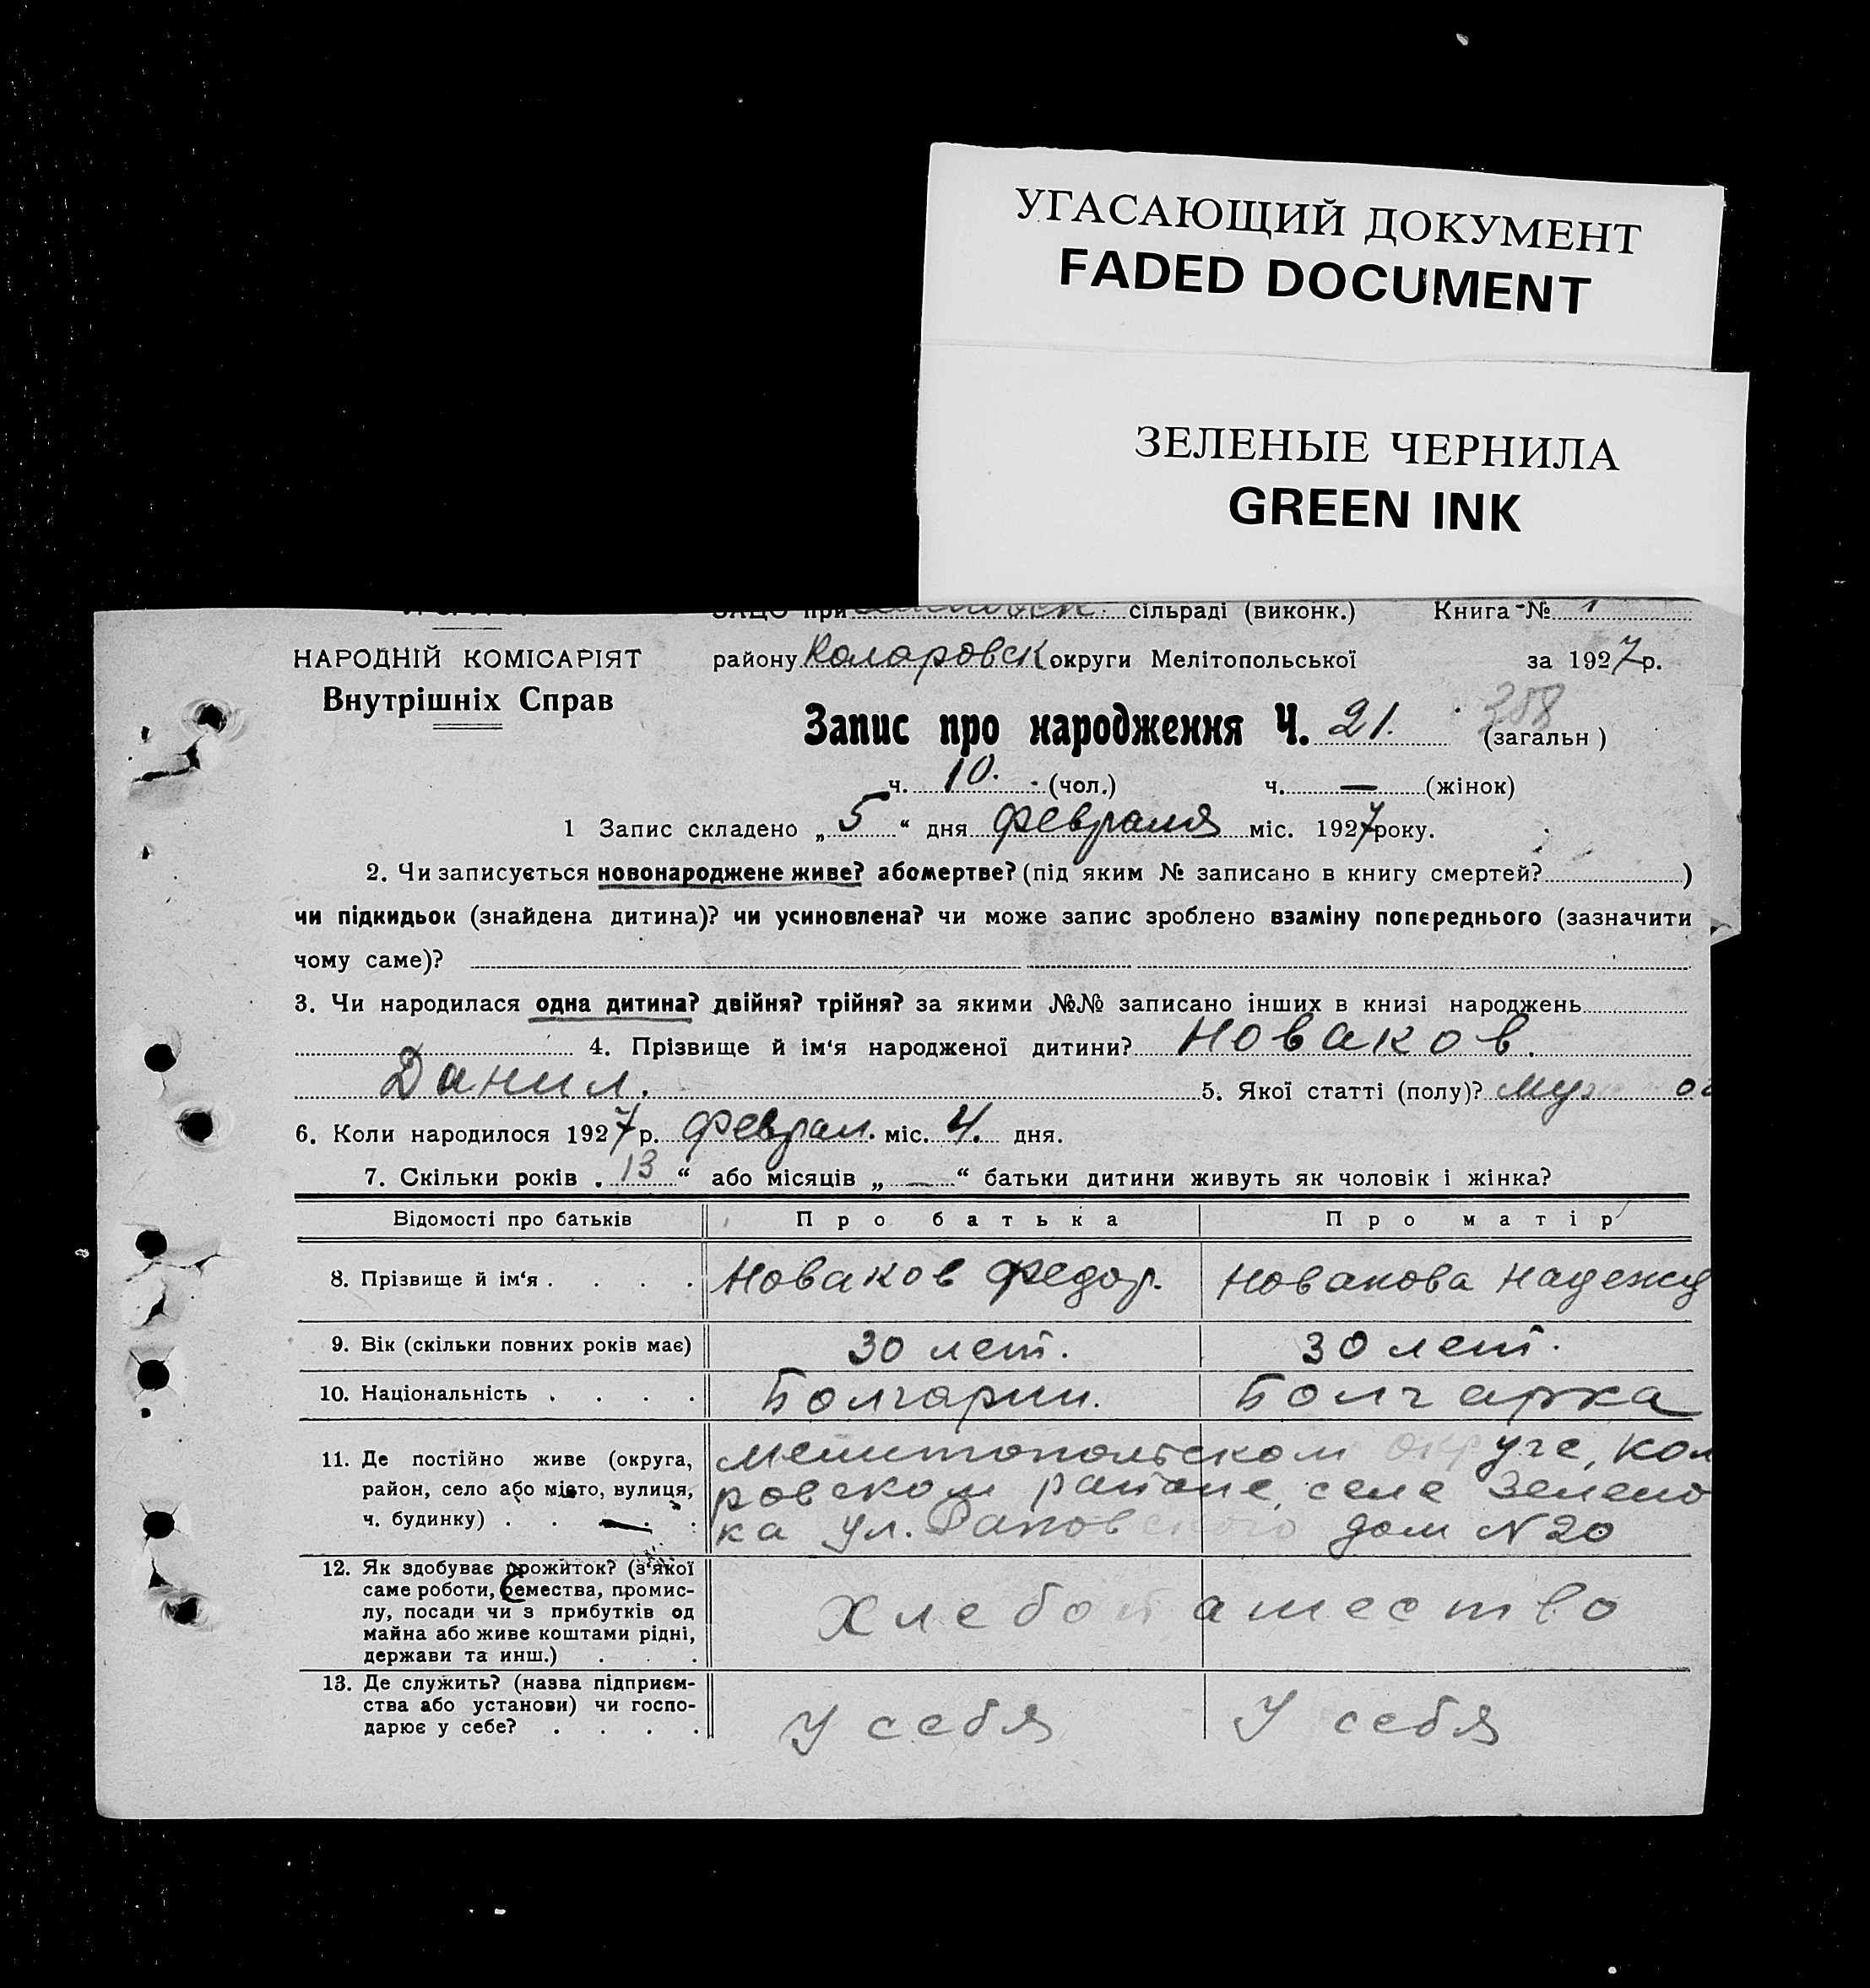 УГАСАЮЩИЙ ДОКУМЕНТ
FADED DOCUMENT
ЗЕЛЕНЫЕ ЧЕРНИЛА
GREEN INK
ЗАЦС при сільраді (виконк.) Книга №
НАРОДНІЙ КОМІСАРІЯТ району Коларовск округи Мелітопольської за 1927 р.
Внутрішніх Справ
Запис про народження Ч. 21. 358 (загальн )
ч. 10. (чол.) ч. — (жінок)
1 Запис складено „ 5 “ дня февраля міс. 1927 року.
2. Чи записується новонароджене живе? або мертве? (під яким № записано в книгу смертей? )
чи підкидьок (знайдена дитина)? чи усиновлена? чи може запис зроблено взаміну попереднього (зазначити
чому саме)?
3. Чи народилася одна дитина? двійня? трійня? за якими №№ записано інших в книзі народжень
4. Прізвище й ім‘я народженої дитини? Новаков.
Данил. 5. Якої статті (полу)?
6. Коли народилося 1927 р. феврал. міс. 4. дня.
7. Скільки років „ 13 “ або місяців „ — “ батьки дитини живуть як чоловік і жінка?
Відомості про батьків Про батька Про матір
8. Прізвище й ім‘я . . . . Новаков Федор. Новакова Надежд
9. Вік (скільки повних років має) 30 лет. 30 лет.
10. Національність . . . . Болгарин. Болгарка
11. Де постійно живе (округа, Мелитопольском округе, Кол
район, село або місто, вулиця, ровском районе, селе Зелено
ч. будинку) . . . . ка ул. Раковского дом N 20
12. Як здобуває прожиток? (з‘якої
саме роботи, ремества, промис-
лу, посади чи з прибутків од Хлебопашество
майна або живе коштами рідні,
держави та инш.) . . .
13. Де служить? (назва підприєм-
ства або установи) чи госпо- У себя У себя
дарює у себе? . . . .